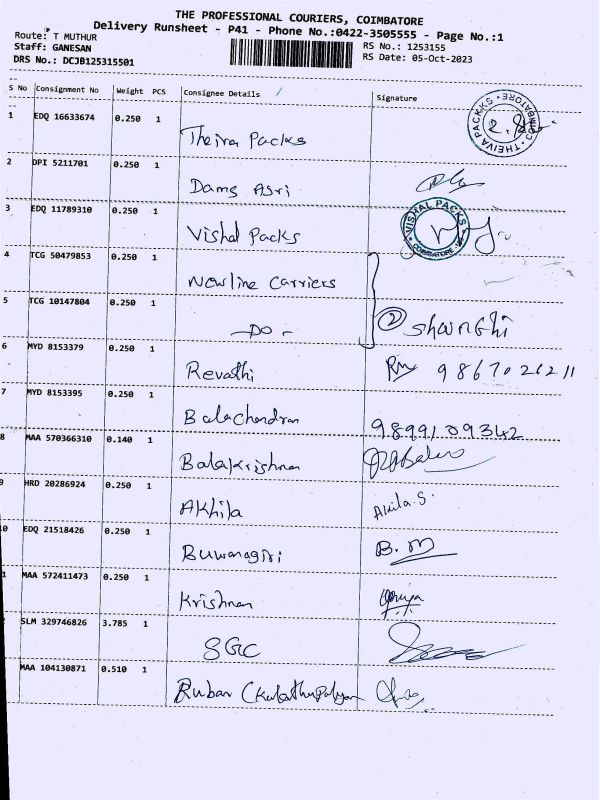 THE PROFESSIONAL COURIERS, COIMBATORE
Delivery Runsheet - P41 - Phone No.:0422-3505555 - Page No.:1
Route: T MUTHUR
Staff: GANESAN
DRS No.: DCJB125315501
RS No.: 1253155
RS Date: 05-Oct-2023
S No Consignment No Weight PCS Consignee Details Signature
1 EDQ 16633674 0.250 1 Theiva Packs
THEIVA PACKKS COIMBATORE
2 DPI 5211701 0.250 1 Dams Asri
3 EDQ 11789310 0.250 1 Vishal Packs
VISHAL PACKS COIMBATORE
4 TCG 50479853 0.250 1 Nowline Carriers
5 TCG 10147804 0.250 1 -DO- 2 Shanghi
6 MYD 8153379 0.250 1 Revathi 9867021211
7 MYD 8153395 0.250 1 Balachandran 9899109342
8 MAA 570366310 0.140 1 Balakrishnan
9 HRD 20286924 0.250 1 Akhila Akila.S.
0 EDQ 21518426 0.250 1 Buwanagiri B.M
1 MAA 572411473 0.250 1 Krishnan
SLM 329746826 3.785 1 SGC
MAA 104130871 0.510 1 Ruban